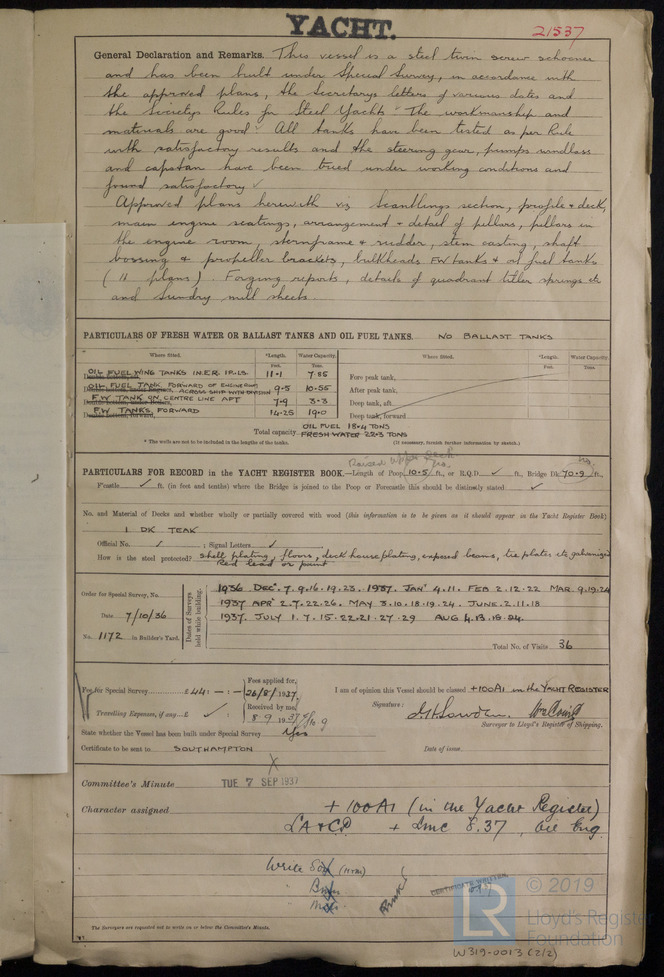 YACHT.
21537
General Declaration and Remarks. This vessel is a steel twin screw schooner
and has been built under Special Survey, in accordance with
the approved plans, the Secretarys letters of various dates and
the Societys Rules for Steel Yachts. The workmanship and
materials are good. All tanks have been tested as per Rule
with satisfactory results and the steering gear, pumps windlass
and capstan have been tried under working conditions and
found satisfactory ✓
Approved plans herewith viz Scantlings section, profile & deck,
main engine seatings, arrangement & detail of pillars, pillars in
the engine room, sternframe & rudder, stem casting, shaft
bossing & propeller brackets, bulkheads FW tanks & oil fuel tanks
(11 plans). Forging reports, details of quadrant tiller springs etc
and sundry mill sheets.
PARTICULARS OF FRESH WATER OR BALLAST TANKS AND OIL FUEL TANKS. NO BALLAST TANKS
Where fitted. *Length. Water Capacity. Where fitted. *Length. Water Capacity.
Feet. Tons. Feet. Tons.
OIL FUEL WING TANKS IN E.R. 11·1 7·85 Fore peak tank,
OIL FUEL TANK FORWARD OF ENGINE ROOM ACROSS SHIP WITH DIVISION 9·5 10·55 After peak tank,
F.W TANK ON CENTRE LINE AFT 7·9 3·3 Deep tank, aft
F.W TANKS, FORWARD 14·25 19·0 Deep tank, forward
Total capacity OIL FUEL 18·4 TONS
FRESH WATER 22·3 TONS
* The wells are not to be included in the lengths of the tanks. (If necessary, furnish further information by sketch.)
Raised upper deck
PARTICULARS FOR RECORD in the YACHT REGISTER BOOK.—Length of Poop, 10·5 ft., or R.Q.D. ✓ ft., Bridge Dk 70·9 ft.,
F'castle ✓ ft. (in feet and tenths) where the Bridge is joined to the Poop or Forecastle this should be distinctly stated ✓
No. and Material of Decks and whether wholly or partially covered with wood (this information is to be given as it should appear in the Yacht Register Book)
1 DK TEAK
Official No. ✓ ; Signal Letters ✓
How is the steel protected? Shell plating, floors, deck house plating, exposed beams, tie plates etc galvanized
Red lead or paint
Order for Special Survey, No.
Date 7/10/36
No. 1172 in Builder's Yard.
Dates of Surveys held while building.
1936 DECR. 7.9.16.19.23. 1937. JANY 4.11. FEB 2.12.22 MAR 9.19.24
1937 APRL 2.7.22.26. MAY 3.10.18.19.24. JUNE.2.11.18
1937. JULY 1.7.15.22.21.27.29 AUG 4.13.18.24.
Total No. of Visits 36
Fee for Special Survey £44: – : –
Travelling Expenses, if any £ ✓ :
Fees applied for, 26/8/1937.
Received by me, 8·9 1937
I am of opinion this Vessel should be classed +100A1 in the YACHT REGISTER
Signature:
Surveyor to Lloyd's Register of Shipping.
State whether the Vessel has been built under Special Survey Yes
Certificate to be sent to SOUTHAMPTON
Date of issue
Committee's Minute TUE 7 SEP 1937
Character assigned +100A1 (in the Yacht Register)
LA&CP + LMC 8.37, Oil Eng
Write
CERTIFICATE WRITTEN
The Surveyors are requested not to write on or below the Committee's Minute.
© 2019
LR
Lloyd's Register
Foundation
W319-0013 (2/2)